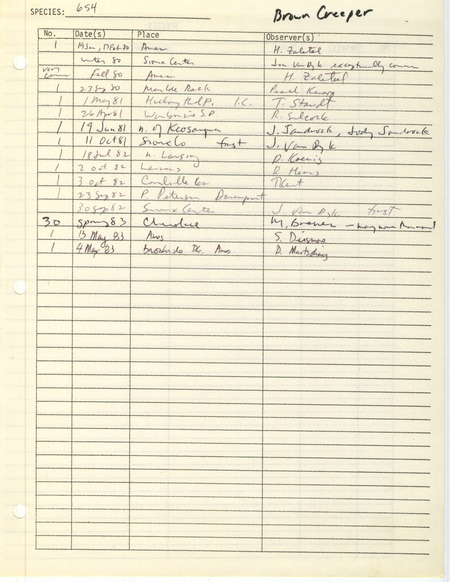 SPECIES: 654 Brown Creeper
No. Date(s) Place Observer(s)
1 Ames H. Zaletel
winter 80 Sioux Center Jan Van Dyk exceptionally common
very common Fall 80 Ames H. Zaletel
1 27 Sep 80 Marble Rock Pearl
1 1 May 81 Hickory Hill P. I.C. T. Staudt
1 26 Apr 81 S.P. R. Silcock
1 19 Jun 81 n. of Keosauqua J. Sandrock, Jody Sandrock
1 11 Oct 81 Sioux Co first J. Van Dyk
1 18 Jul 82 n. Lansing D. Koenig
1 2 Oct 82 Lamoni R.
1 3 Oct 82 Coralville TKent
1 23 Sep 82 P. Petersen Davenport
1 30 Sep 82 Sioux Center J. Van Dyk first
30 spring 83 Cherokee M. Brewer
1 13 May 83 Ames S. Dinsmore
1 4 May 83 Brookside Pk. Ames D.